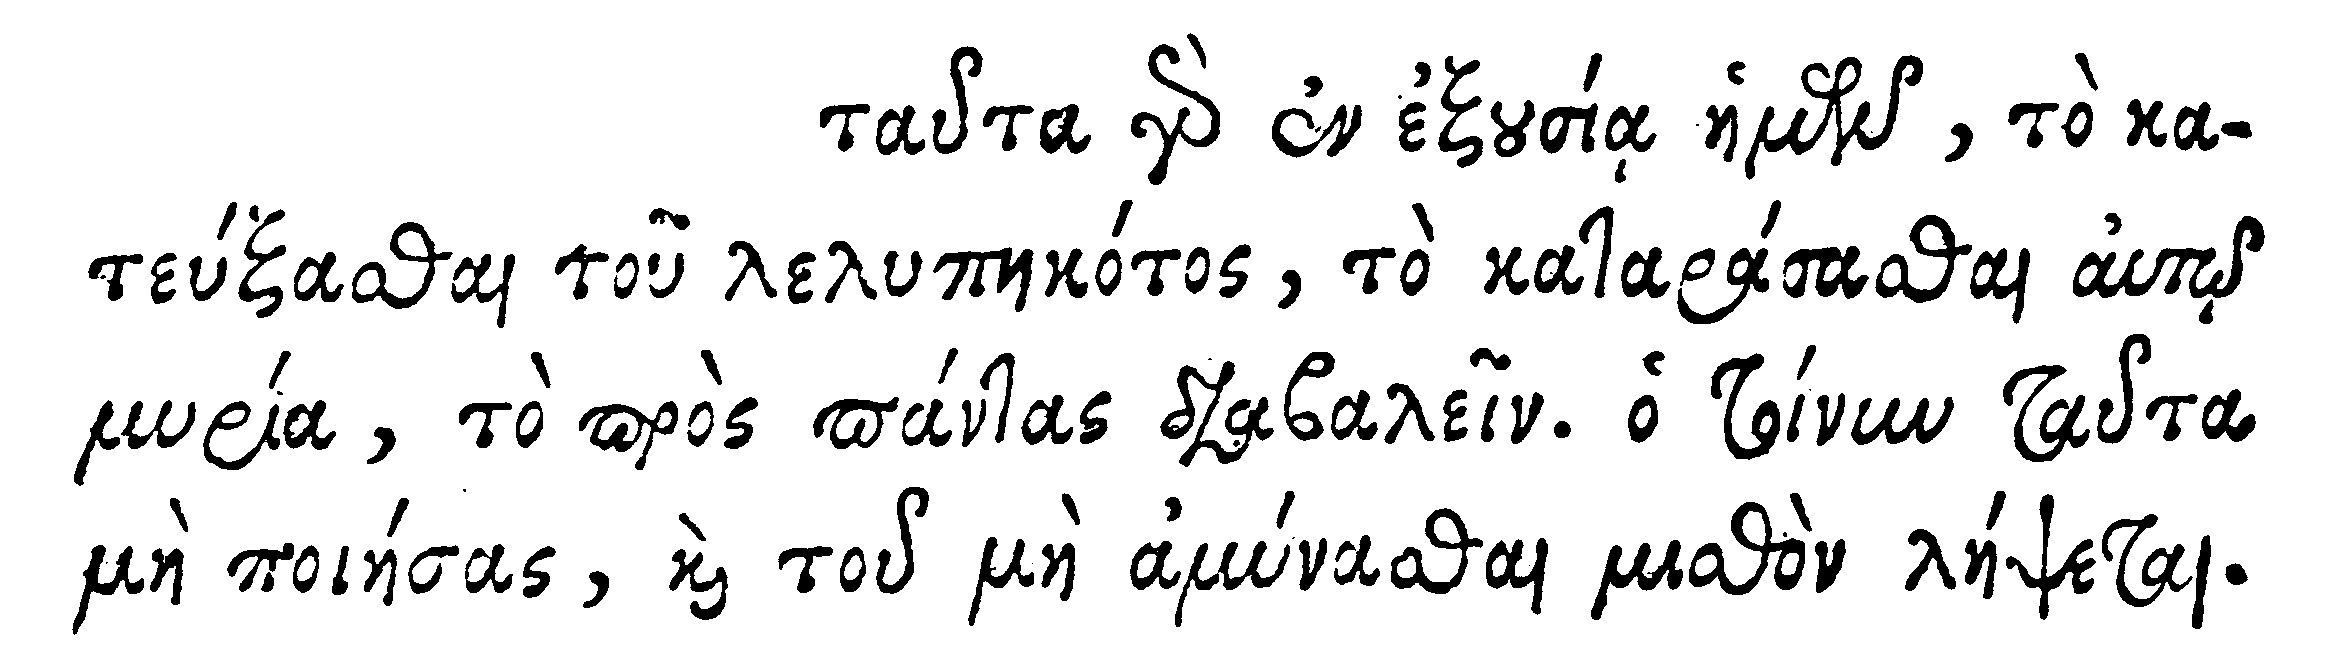 ταῦτα γὰρ ἐν ἐξουσίᾳ ἡμῖν, τὸ κα-
τεύξασθαι τοῦ λελυπηκότος, τὸ καταράσασθαι αὐτῷ
μυρία, τὸ πρὸς πάντας διαβαλεῖν. ὁ τοίνυν ταῦτα
μὴ ποιήσας, καὶ τοῦ μὴ ἀμύνασθαι μισθὸν λήψεται.